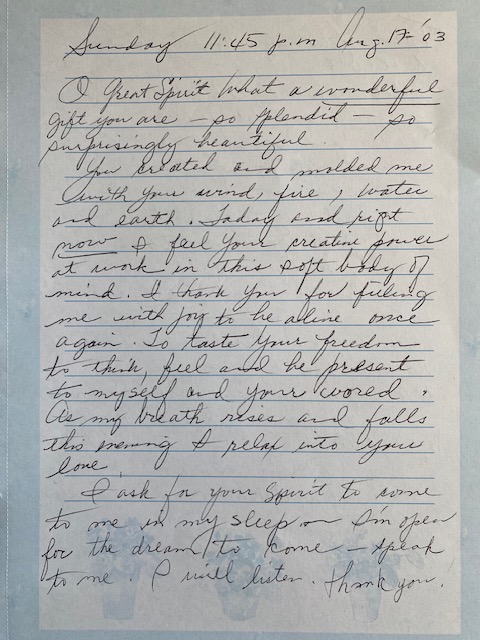 Sunday 11:45 p.m Aug. 17-'03
O Great Spirit What a wonderful
gift you are — so splendid — so
surprisingly beautiful.
You created and molded me
with your wind, fire, water
and earth. Today and right
now I feel Your creative power
at work in this soft body of
mind. I thank You for filling
me with joy to be alive once
again. To taste Your freedom
to think, feel and be present
to myself and your world.
As my breath rises and falls
this evening I relax into your
love.
I ask for your Spirit to come
to me in my sleep or I'm open
for the dream to come — speak
to me. I will listen. Thank you.